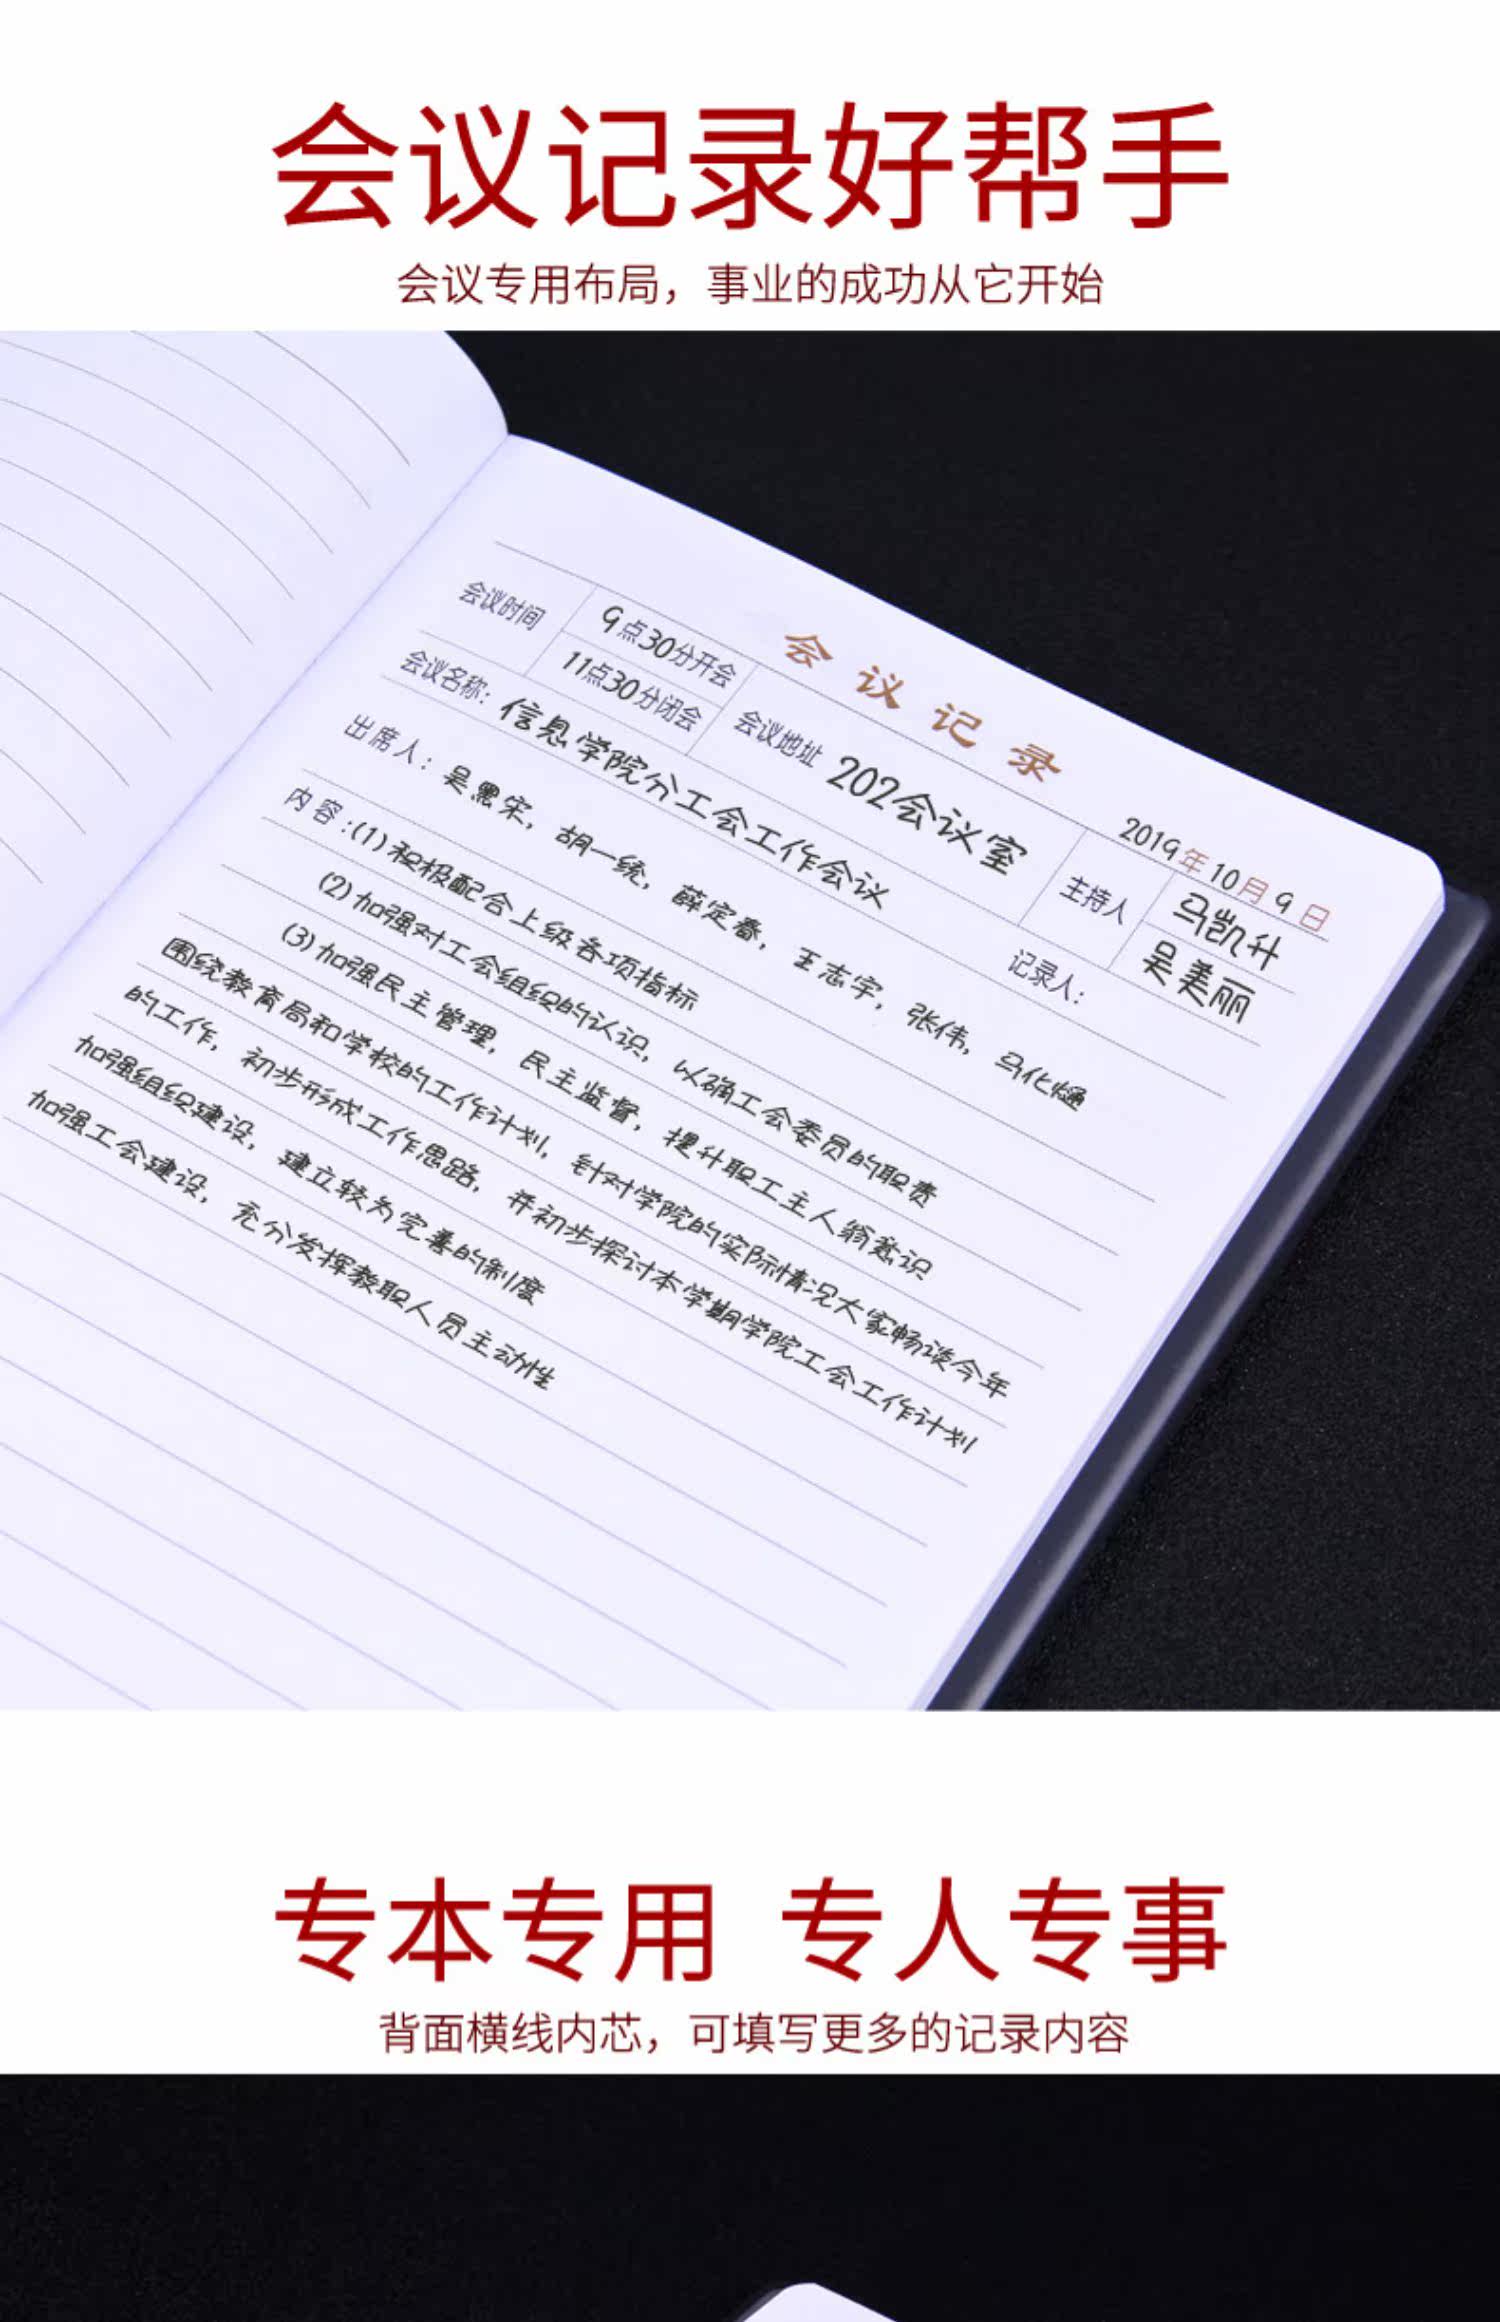 会议记录好帮手
会议专用布局，事业的成功从它开始
会议记录
2019年10月9日
会议时间
9点30分开会
11点30分闭会
会议地址 202会议室
主持人 马凯升
记录人： 吴美丽
会议名称：信息学院分工会工作会议
出席人：吴黑宋，胡一统，薛定春，王志宇，张伟，马化
内容：(1)积极配合上级各项指标
(2)加强对工会组织的认识，以确工会委员的职责
(3)加强民主管理，民主监督，提升职工主人翁意识
围绕教育局和学校的工作计划，针对学院的实际情况大家畅谈今年
的工作，初步形成工作思路，并初步探讨本学期学院工会工作计划
加强组织建设，建立较为完善的制度
加强工会建设，充分发挥教职人员主动性
专本专用 专人专事
背面横线内芯，可填写更多的记录内容